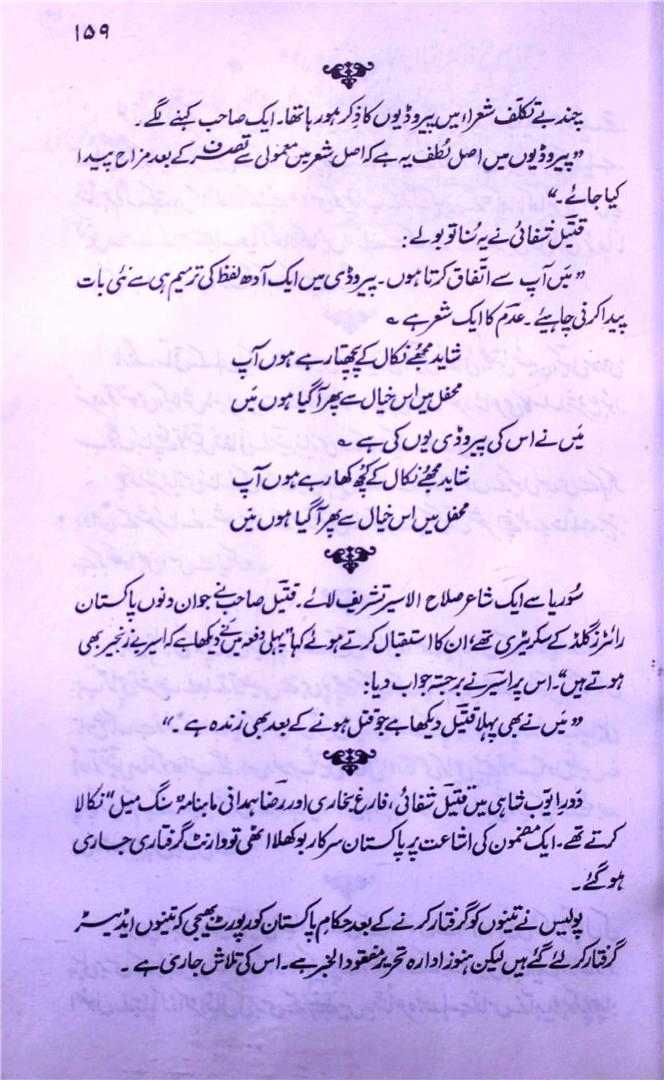 ۱۵۹
چند بے تکلّف شعراء میں پیروڈیوں کا ذکر ہو رہا تھا۔ ایک صاحب کہنے لگے۔
”پیروڈیوں میں اصل لُطف یہ ہے کہ اصل شعر میں معمولی سے تصرّف کے بعد مزاح پیدا
کیا جائے۔“
قتیلؔ شفائی نے یہ سُنا تو بولے:
”مَیں آپ سے اتّفاق کرتا ہوں۔ پیروڈی میں ایک آدھ لفظ کی ترمیم ہی سے نئی بات
پیدا کرنی چاہیئے۔ عدمؔ کا ایک شعر ہے ؎
شاید مجھے نکال کے پچھتا رہے ہوں آپ
محفل میں اس خیال سے پھر آگیا ہوں مَیں
مَیں نے اس کی پیروڈی یوں کی ہے ؎
شاید مجھے نکال کے کچھ کھا رہے ہوں آپ
محفل میں اس خیال سے پھر آگیا ہوں مَیں
سُوریا سے ایک شاعر صلاح الاسیر تشریف لائے۔ قتیلؔ صاحب نے جو ان دنوں پاکستان
رائٹرز گلڈ کے سکریٹری تھے، ان کا استقبال کرتے ہوئے کہا ”پہلی دفعہ میں نے دیکھا ہے کہ اسیر بے زنجیر بھی
ہوتے ہیں“۔ اس پر اسیرؔ نے برجستہ جواب دیا:
”مَیں نے بھی پہلا قتیلؔ دیکھا ہے جو قتل ہونے کے بعد بھی زندہ ہے۔“
دَورِ ایّوب شاہی میں قتیلؔ شفائی، فارغؔ بخاری اور رضاؔ ہمدانی ماہنامہ ”سنگ میل“ نکالا
کرتے تھے۔ ایک مضمون کی اشاعت پر پاکستان سرکار بوکھلا اٹھی تو وارنٹ گرفتاری جاری
ہوگئے۔
پولیس نے تینوں کو گرفتار کرنے کے بعد حکامِ پاکستان کو رپورٹ بھیجی کہ تینوں ایڈیٹر
گرفتار کرلئے گئے ہیں لیکن ہنوز ادارہ تحریر مفقود الخبر ہے۔ اس کی تلاش جاری ہے۔